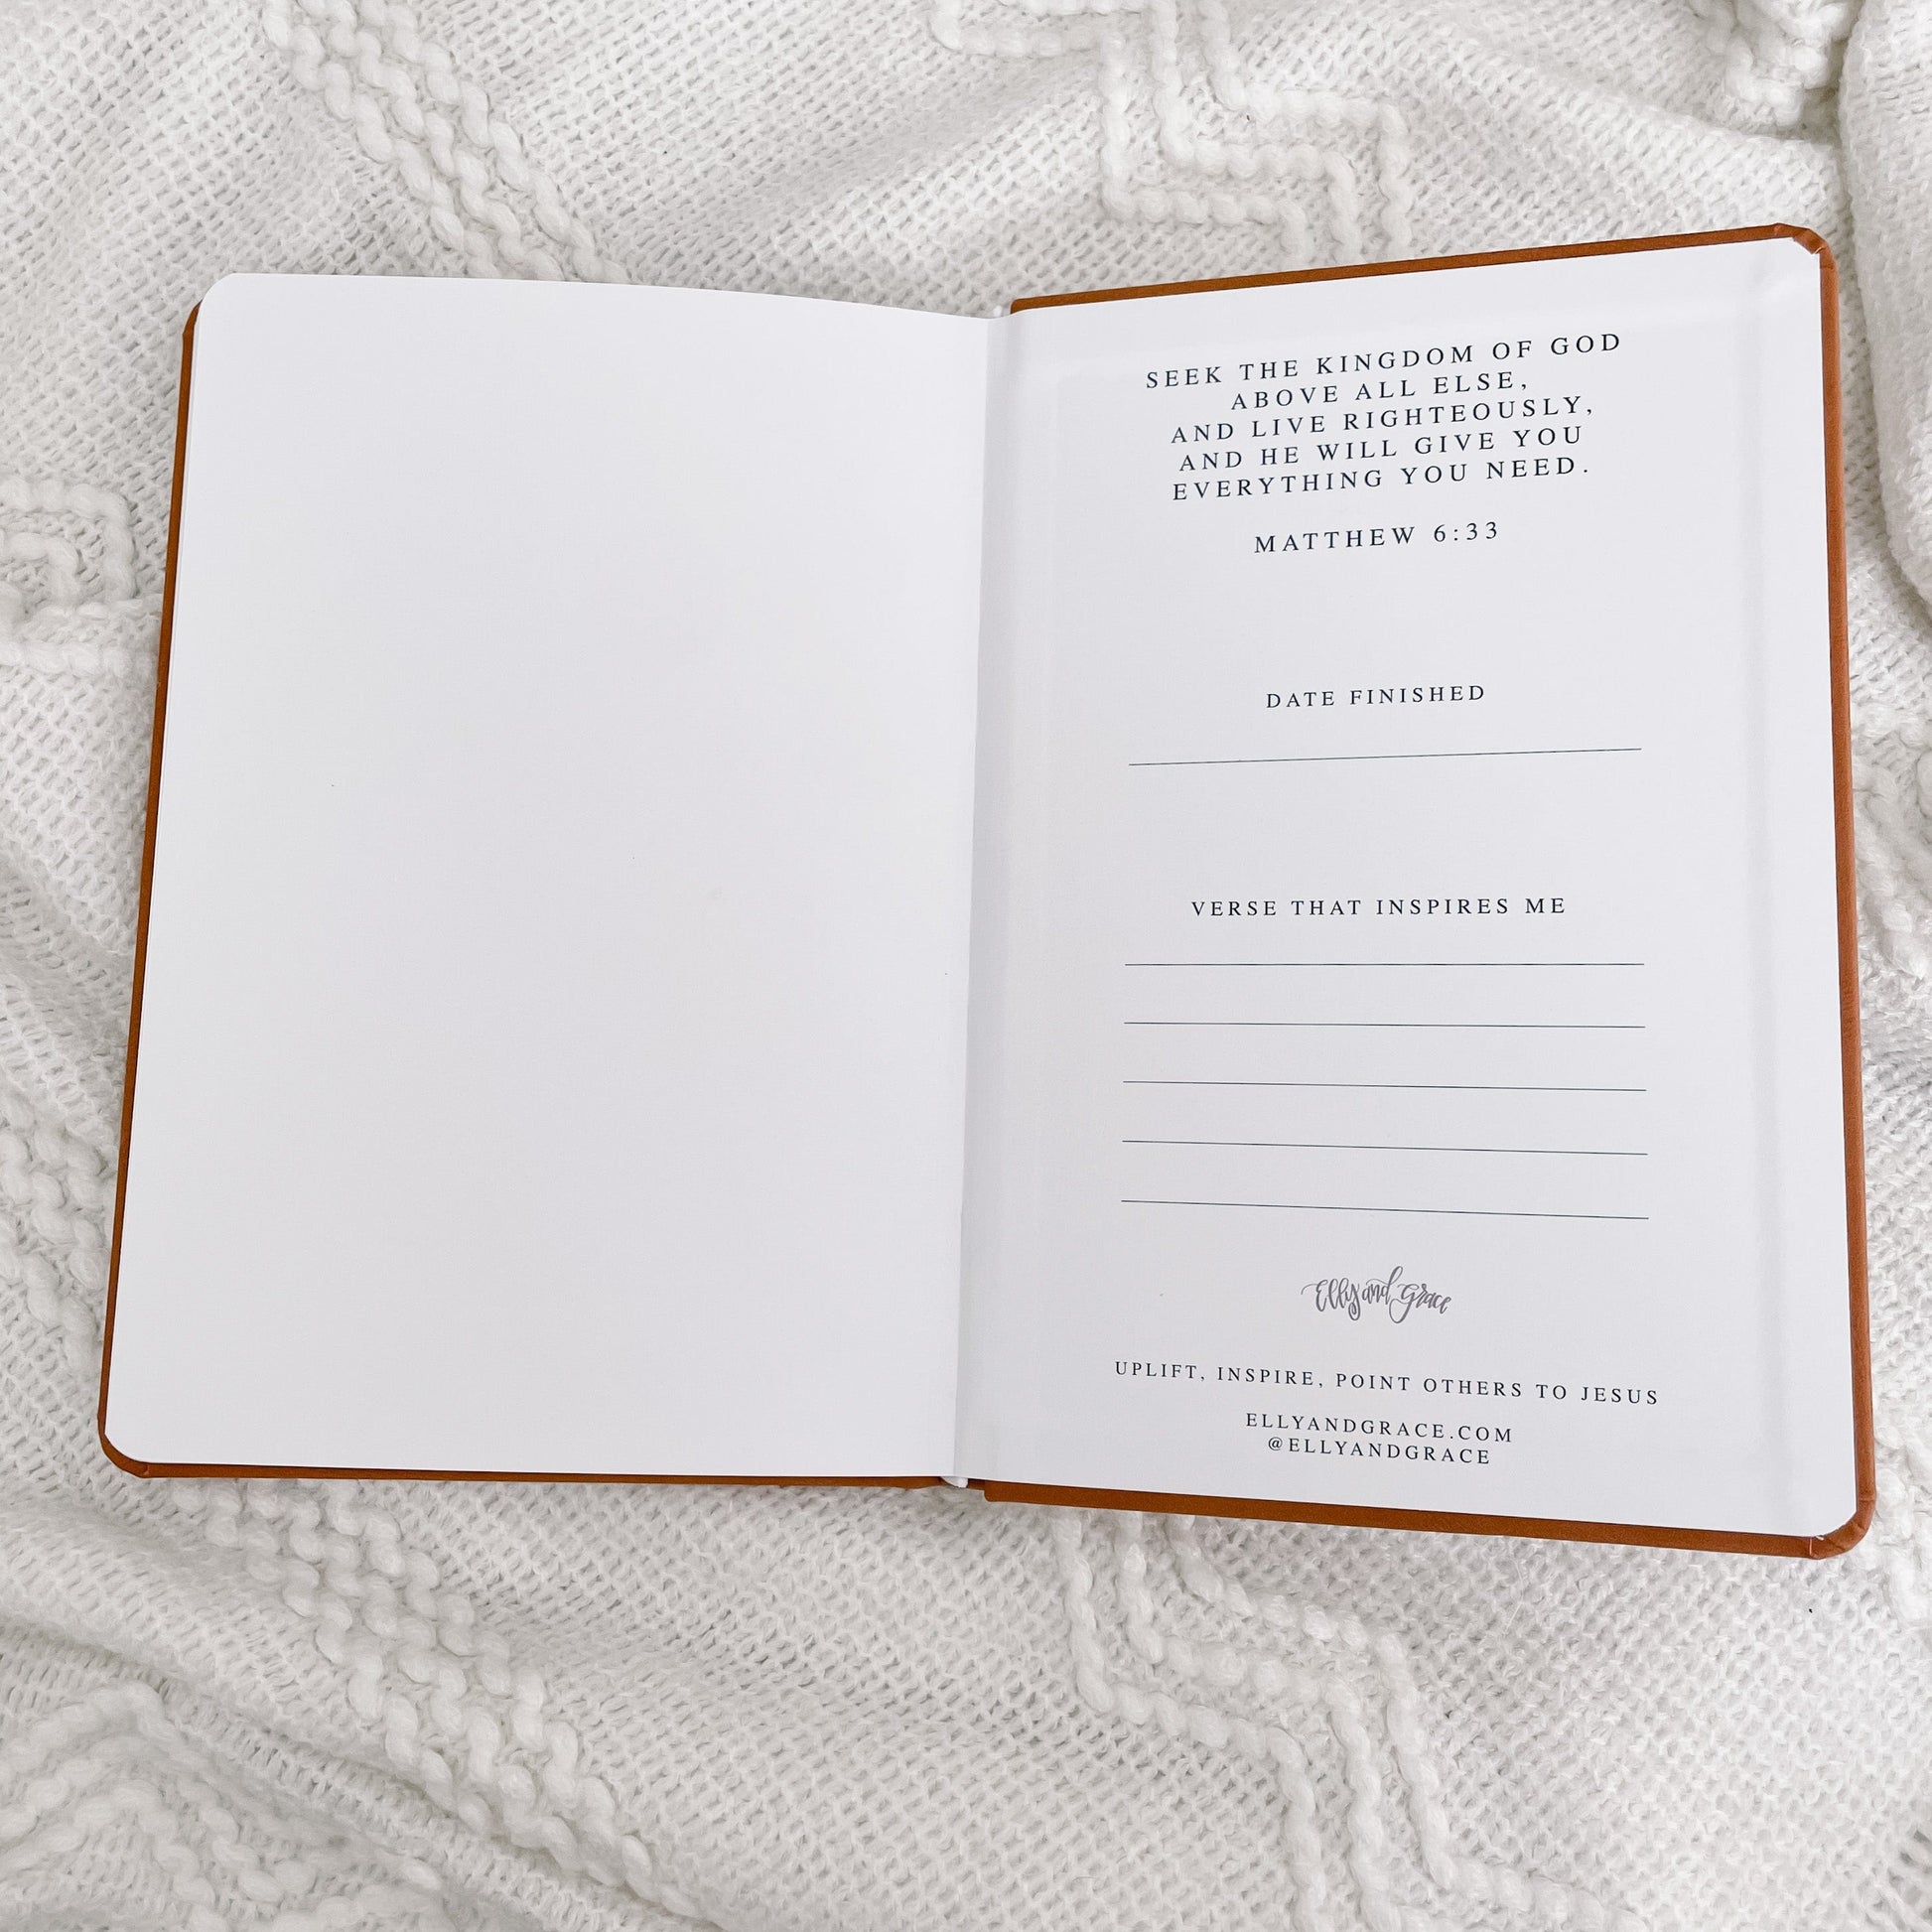 SEEK THE KINGDOM OF GOD
ABOVE ALL ELSE,
AND LIVE RIGHTEOUSLY,
AND HE WILL GIVE YOU
EVERYTHING YOU NEED.
MATTHEW 6:33
DATE FINISHED
VERSE THAT INSPIRES ME
Elly and Grace
UPLIFT, INSPIRE, POINT OTHERS TO JESUS
ELLYANDGRACE.COM
@ELLYANDGRACE